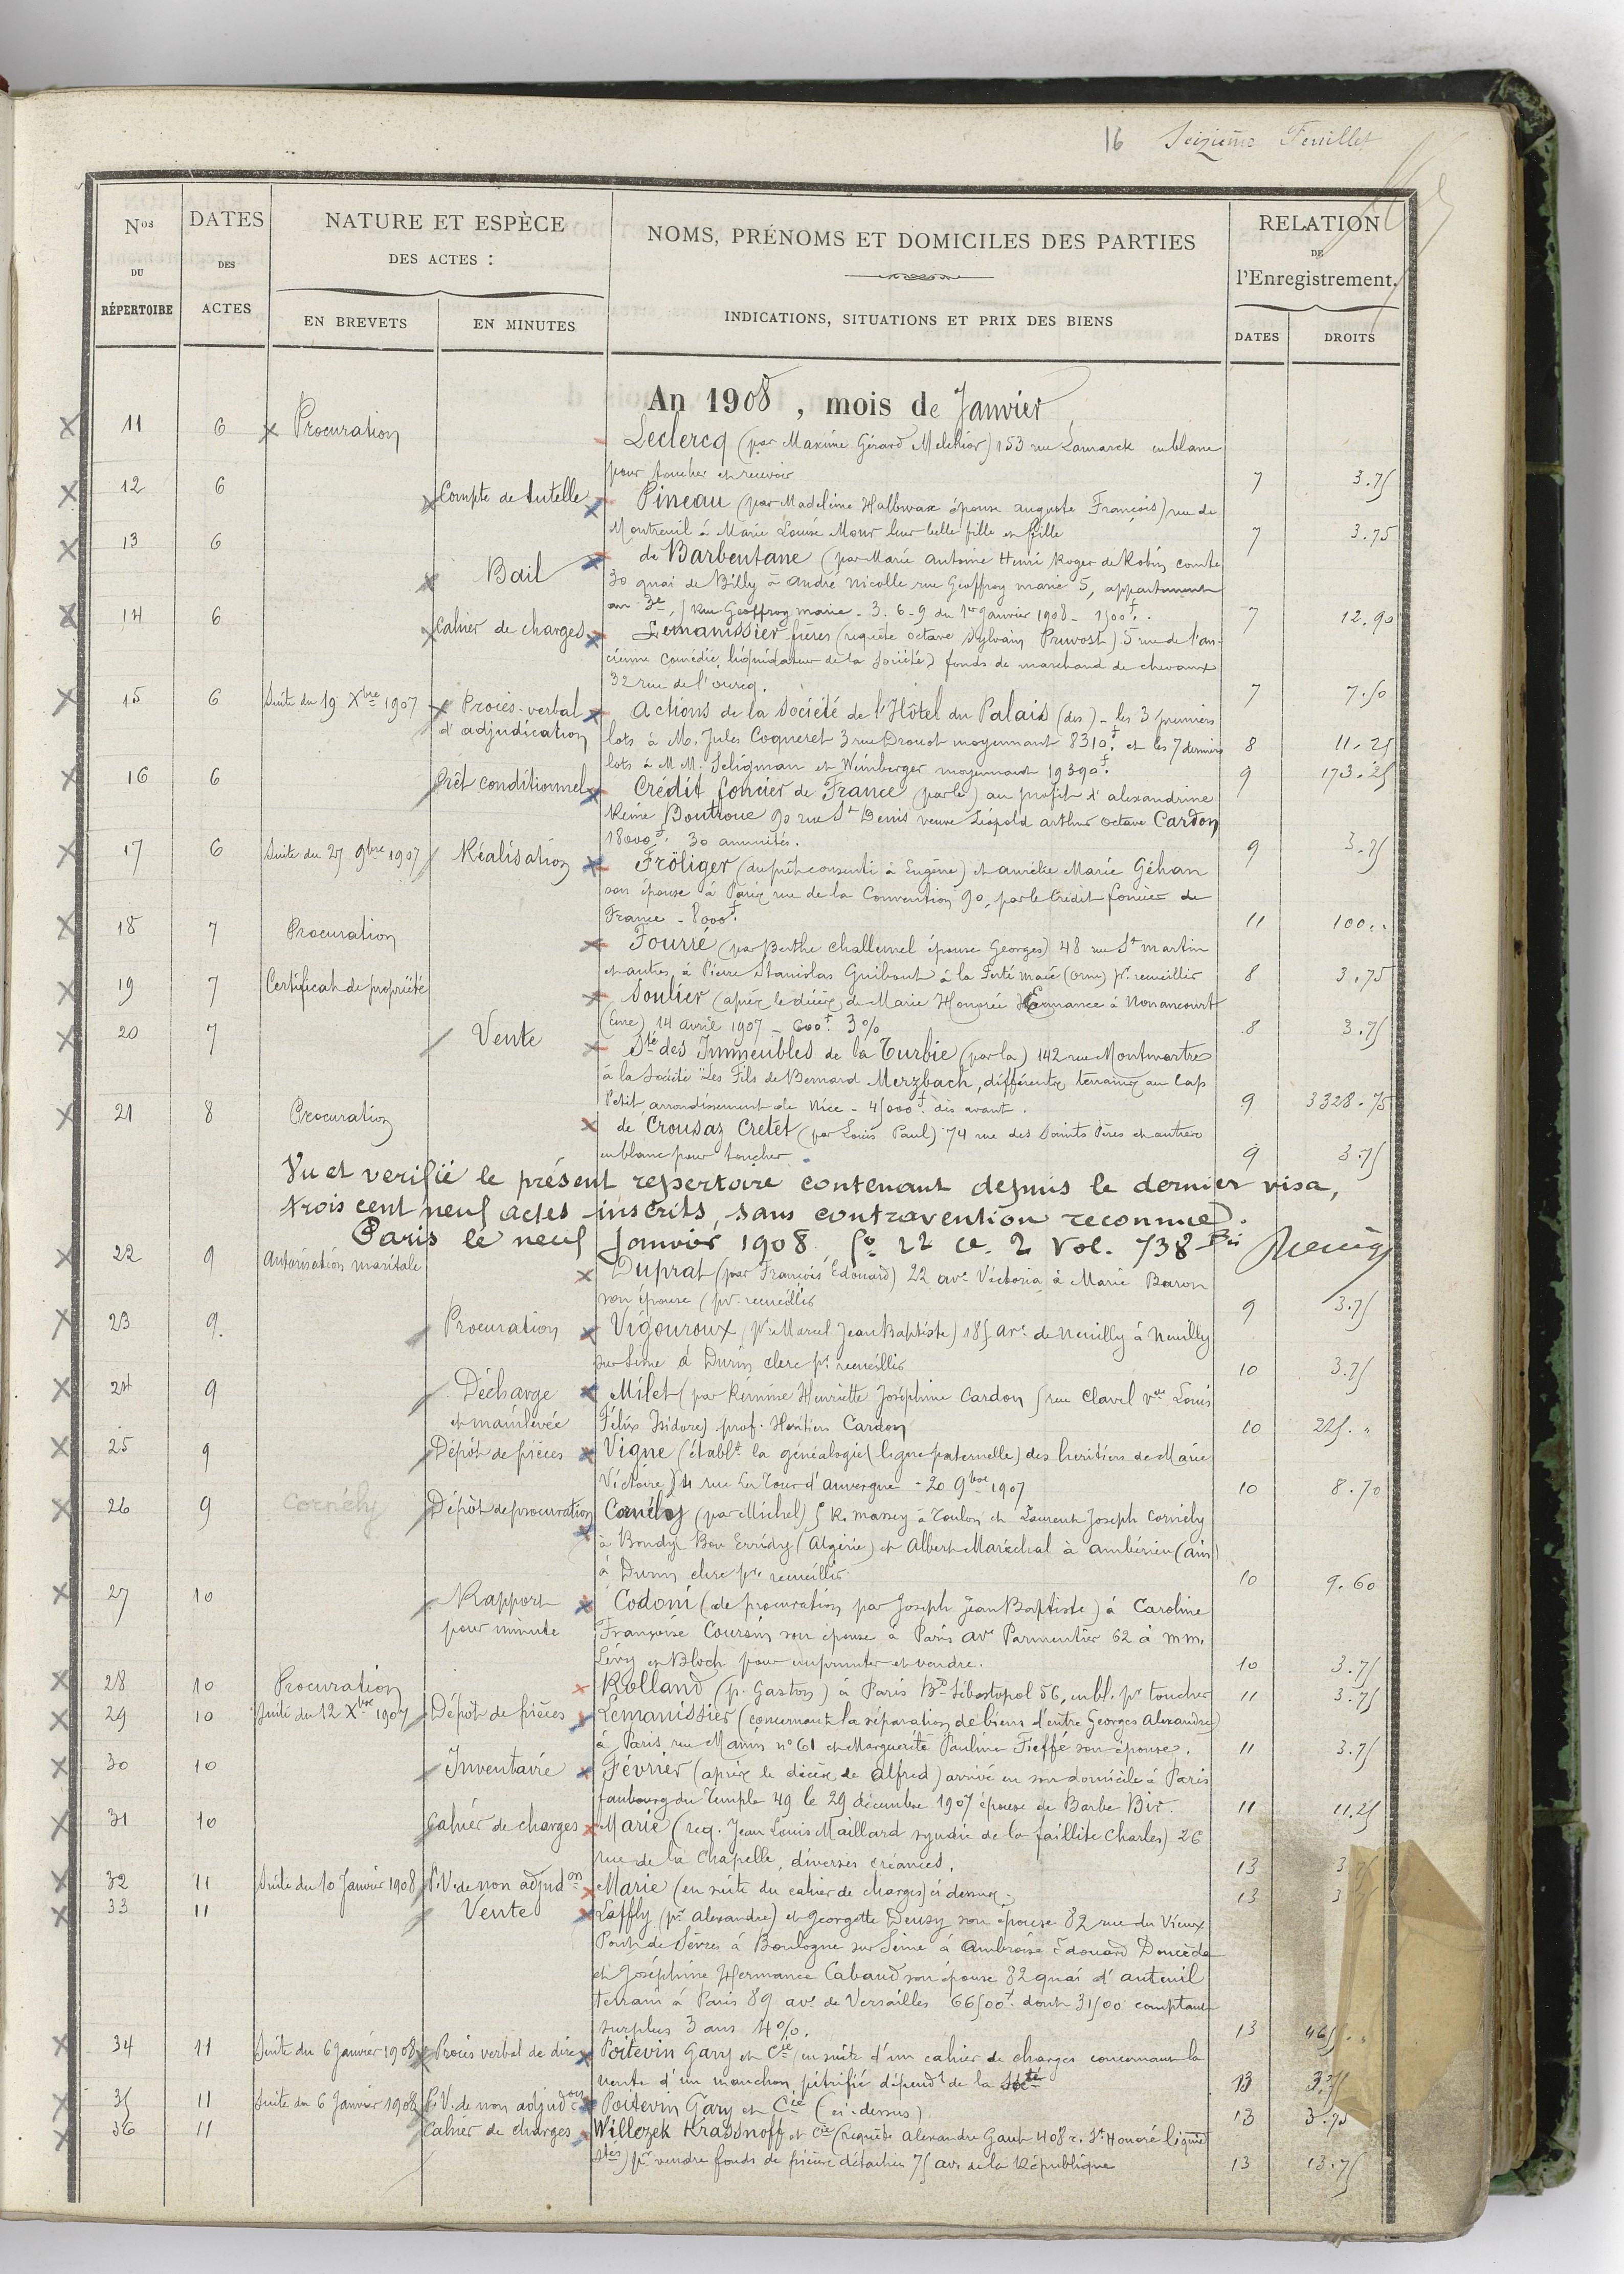 16 Seizième Feuillet
Nos DU RÉPERTOIRE
DATES DES ACTES
NATURE ET ESPÈCE DES ACTES :
EN BREVETS
EN MINUTES
NOMS, PRÉNOMS ET DOMICILES DES PARTIES
INDICATIONS, SITUATIONS ET PRIX DES BIENS
RELATION DE l'Enregistrement.
DATES
DROITS
An 1908, mois de Janvier
11 6 Procuration Leclercq (par Maxime Gérard Melchior) 153 rue Lamarck en blanc
pour toucher et recevoir 7 3.75
12 6 Compte de tutelle Pineau (par Madeleine Halbwax épouse Auguste François) rue de
Montreuil à Marie Louise Mour leur belle fille et fille 7 3.75
13 6 Bail de Barbentane (par Marie Antoine Henri Roger de Robin comte
30 quai de Billy à André Nicolle rue Geoffroy marie 5, appartement
au 3e, 5 rue Geoffroy marie - 3.6-9 du 1er Janvier 1908 - 1500f. 7 12.90
14 6 Cahier de charges Lemanissier frères (requête Octave Sylvain Pruvost) 5 rue de l'an-
cienne Comédie, liquidateur de la Société) fonds de marchand de chevaux
32 rue de l'ourcq. 7 7.50
15 6 Suite du 19 Xbre 1907 Procès-verbal d'adjudication Actions de la Société de l'Hôtel du Palais (des) - les 3 premiers
lots à M. Jules Coqueret 3 rue Drouot moyennant 8310f. et les 7 derniers 8 11.25
lots à MM. Seligman et Weinberger moyennant 19390f. 9 173.25
16 6 Prêt conditionnel Crédit foncier de France (par le) au profit d'Alexandrine
Reine Boutroue 90 rue St Denis veuve Léopold Arthur Octave Cardon
18000f. 30 annuités. 9 3.75
17 6 Suite du 27 9bre 1907 Réalisation Fröliger (du prêt consenti à Eugène) et Aurélie Marie Géhan
son épouse à Paris rue de la Convention 90, par le Crédit foncier de
France - 8000f. 11 100..
18 7 Procuration Fourré (par Berthe Challemel épouse Georges) 48 rue St martin
et autres, à Pierre Stanislas Guibout à la Ferté Macé (Orne) pr. recueillir 8 3.75
19 7 Certificat de propriété Soulier (après le décès de Marie Honorée Hermance à Nonancourt
(Eure) 14 avril 1907 - 600f. 3% 8 3.75
20 7 Vente Sté des Immeubles de la Turbie (par la) 142 rue Montmartre
à la Société "Les Fils de Bernard Merzbach, différents terrains au Cap
Petit, arrondissement de Nice - 45000f. dès avant. 9 3328.75
21 8 Procuration de Crousaz Cretet (par Louis Paul) 74 rue des Saints Pères et autres
en blanc pour toucher 9 3.75
Vu et verifié le présent repertoire contenant depuis le dernier visa,
trois cent neuf actes inscrits, sans contravention reconnue.
Paris le neuf Janvier 1908, fo 22 ce. 2 Vol. 738 Bis
22 9 Autorisation maritale Duprat (par François Edouard) 22 ave Victoria, à Marie Baron
son épouse (pr. recueillir 9 3.75
23 9. Procuration Vigouroux, (pr. Marcel Jean Baptiste) 185 ave de Neuilly à Neuilly
sur Seine à Durin clerc pr. recueillir 10 3.75
24 9 Décharge et mainlevée Milet (par Rémine Henriette Joséphine Cardon 5 rue Clavel vve Louis
Félix Isidore) prof. Héritiers Cardon 10 225.."
25 9 Dépôt de pièces Vigne (établt. la généalogie (ligne paternelle) des héritiers de Marie
Victoire) 14 rue La Tour d'auvergne - 20 9bre 1907 10 8.70
26 9 Cornély Dépôt de procuration Cornély (par Michel) 5 R. massey à Toulon et Laurent Joseph Cornély
à Bondy Bou Erridy (Algérie) et Albert Maréchal à ambérieu (ain)
à Durin clerc pr. recueillir 10 9.60
27 10 Rapport pour minute Codoni (de procuration par Joseph Jean Baptiste) à Caroline
Françoise Coursin son épouse à Paris ave Parmentier 62 à mm.
Lévy et Bloch pour emprunter et vendre. 10 3.75
28 10 Procuration Rolland (p. Gaston) à Paris Bd Sébastopol 56, en bl. pr toucher 11 3.75
29 10 Suite du 12 Xbre 1907 Dépôt de pièces Lemanissier (concernant la séparation de biens d'entre Georges Alexandre)
à Paris rue Manin no 61 et Marguerite Pauline Fieffé son épouse. 11 3.75
30 10 Inventaire Février (après le décès de Alfred) arrivé en son domicile à Paris
faubourg du Temple 49 le 29 décembre 1907 époux de Barbe Bir. 11 11.25
31 10 Cahier de charges Marié (req. Jean Louis Maillard syndic de la faillite Charles) 26
rue de la Chapelle, diverses créances. 13 3
32 11 Suite du 10 Janvier 1908 P.V. de non adjudon Marie (en suite du cahier de charges) ci dessus. 13 3
33 11 Vente Laffly (pr. Alexandre) et Georgette Deusy son épouse 82 rue du Vieux
Pont de Sèvres à Boulogne sur Seine à Ambroise Edouard Doucède
et Joséphine Hermance Cabaud son épouse 32 quai d'auteuil
terrain à Paris 89 ave de Versailles 66500f. dont 31500 comptant
surplus 3 ans 4%. 13
34 11 Suite du 6 Janvier 1908 Procès verbal de dires Poitevin Gary et Cie (en suite d'un cahier de charges concernant la
vente d'un manchon pétrifié dépendt de la Sté 13 3.75
35 11 Suite du 6 Janvier 1908 P.V. de non adjudon Poitevin Gary et Cie (ci-dessus) 13 3.75
36 11 Cahier de charges Willezek Krassnoff et Cie (requête Alexandre Gaut 408 r. St Honoré
pr. vendre fonds de pièces détachées 75 av. de la République 13 13.75